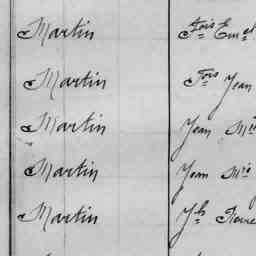 Martin Fois Em.el
Martin Fois Jean
Martin Jean M.ie
Martin Jean M.ie
Martin Jh Pierre